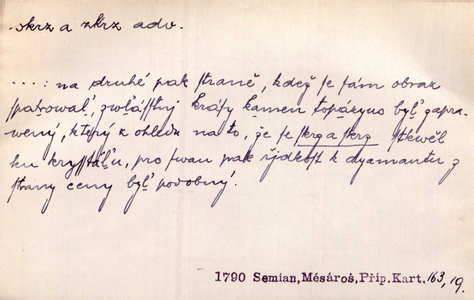 skrz a zkrz adv.
....: na druhé pak straně, kdež se tám obraz
spatrowal, zwlásstný krásy kamen topázyus byl zapra-
wený, který z ohledu na to, že se skrz a skrz stkwěl
ku krysstálu, pro swau pak řjdkost k dyamantu z
strany ceny byl podobný.
1790 Semian, Mésároš, Příp. Kart. 163, 19.